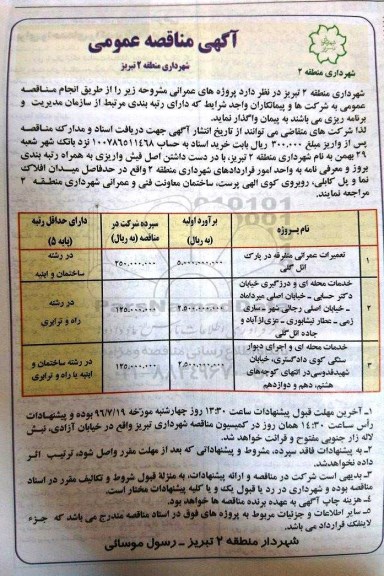 آگهی مناقصه عمومی
شهرداری منطقه ۲ تبریز
شهرداری منطقه ۲
شهرداری منطقه ۲ تبریز در نظر دارد پروژه های عمرانی مشروحه زیر را از طریق انجام مناقصه
عمومی به شرکت ها و پیمانکاران واجد شرایط که دارای رتبه بندی مرتبط از سازمان مدیریت و
برنامه ریزی می باشند به پیمان واگذار نماید.
لذا شرکت های متقاضی می توانند از تاریخ انتشار آگهی جهت دریافت اسناد و مدارک مناقصه
پس از واریز مبلغ ۳۰۰.۰۰۰ ریال بابت خرید اسناد به حساب ۱۰۰۷۸۶۵۱۱۴۶۸ نزد بانک شهر شعبه
۲۹ بهمن به نام شهرداری منطقه ۲ تبریز، با در دست داشتن اصل فیش واریزی به همراه رتبه بندی
بروز و معرفی نامه به واحد امور قراردادهای شهرداری منطقه ۲ واقع در حدفاصل میدان افلاک
نما و پل کابلی، روبروی کوی الهی پرست، ساختمان معاونت فنی و عمرانی شهرداری منطقه ۲
مراجعه نمایند.
نام پروژه
برآورد اولیه (به ریال)
سپرده شرکت در مناقصه (به ریال)
دارای حداقل رتبه (پایه ۵)
۱
تعمیرات عمرانی متفرقه در پارک
ائل گلی
۵.۰۰۰.۰۰۰.۰۰۰
۲۵۰.۰۰۰.۰۰۰
در رشته
ساختمان و ابنیه
۲
خدمات محله ای و درزگیری خیابان
دکتر حسابی ـ خیابان اصلی میرداماد
ـ خیابان اصلی رجائی شهر ـ ساری
زمی ـ عطار نیشابوری ـ
جاده ائل گلی
۲.۵۰۰.۰۰۰.۰۰۰
۱۲۵.۰۰۰.۰۰۰
در رشته
راه و ترابری
۳
خدمات محله ای و اجرای دیوار
سنگی کوی دادگستری، خیابان
شهیدقدوسی در انتهای کوچه‌های
هشتم، دهم و دوازدهم
۲.۵۰۰.۰۰۰.۰۰۰
۱۲۵.۰۰۰.۰۰۰
در رشته ساختمان و
ابنیه یا راه و ترابری
۱ـ آخرین مهلت قبول پیشنهادات ساعت ۱۳:۳۰ روز چهارشنبه مورخه ۹۶/۷/۱۹ بوده و پیشنهادات
رأس ساعت ۱۴:۳۰ همان روز در کمیسیون مناقصه شهرداری تبریز واقع در خیابان آزادی، نبش
لاله زار جنوبی مفتوح و قرائت خواهد شد.
۲ـ به پیشنهادات فاقد سپرده، مشروط و پیشنهاداتی که بعد از مهلت مقرر واصل شود، ترتیب اثر
داده نخواهد شد.
۳ـ بدیهی است شرکت در مناقصه و ارائه پیشنهادات، به منزلة قبول شروط و تکالیف مقرر در اسناد
مناقصه بوده و شهرداری در رد یا قبول یک و یا کلیه پیشنهادات مختار است.
۴ـ هزینه چاپ آگهی به عهده برنده مناقصه ها خواهد بود.
۵ـ سایر اطلاعات و جزئیات مربوط به پروژه های فوق در اسناد مناقصه مندرج می باشد که جزء
لاینفک قرارداد می باشد.
شهردار منطقه ۲ تبریز ـ رسول موسائی